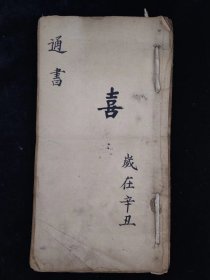 歲在辛丑
喜
通書